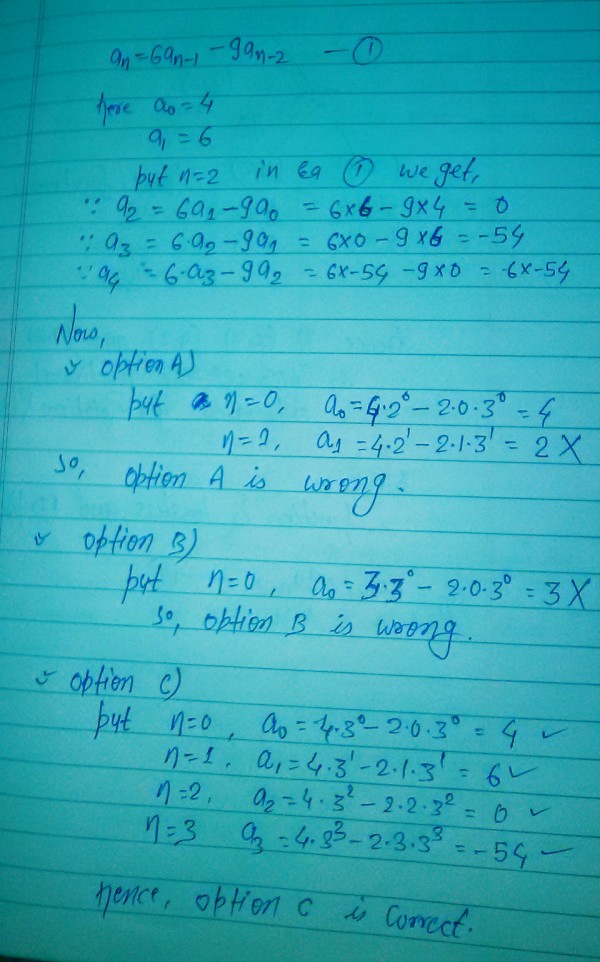 aₙ = 6aₙ₋₁ - 9aₙ₋₂ — ①
here a₀ = 4
a₁ = 6
put n=2 in Eq ① we get,
∵ a₂ = 6a₁ - 9a₀ = 6×6 - 9×4 = 0
∵ a₃ = 6·a₂ - 9a₁ = 6×0 - 9×6 = -54
∵ a₄ = 6·a₃ - 9a₂ = 6×-54 - 9×0 = -6×-54
Now,
option A)
put n=0, a₀ = 4·2⁰ - 2·0·3⁰ = 4
n=1, a₁ = 4·2¹ - 2·1·3¹ = 2 X
so, option A is wrong.
option B)
put n=0, a₀ = 3·3⁰ - 2·0·3⁰ = 3 X
so, option B is wrong.
option C)
put n=0, a₀ = 4·3⁰ - 2·0·3⁰ = 4 ✓
n=1, a₁ = 4·3¹ - 2·1·3¹ = 6 ✓
n=2, a₂ = 4·3² - 2·2·3² = 0 ✓
n=3 a₃ = 4·3³ - 2·3·3³ = -54 ✓
hence, option C is correct.